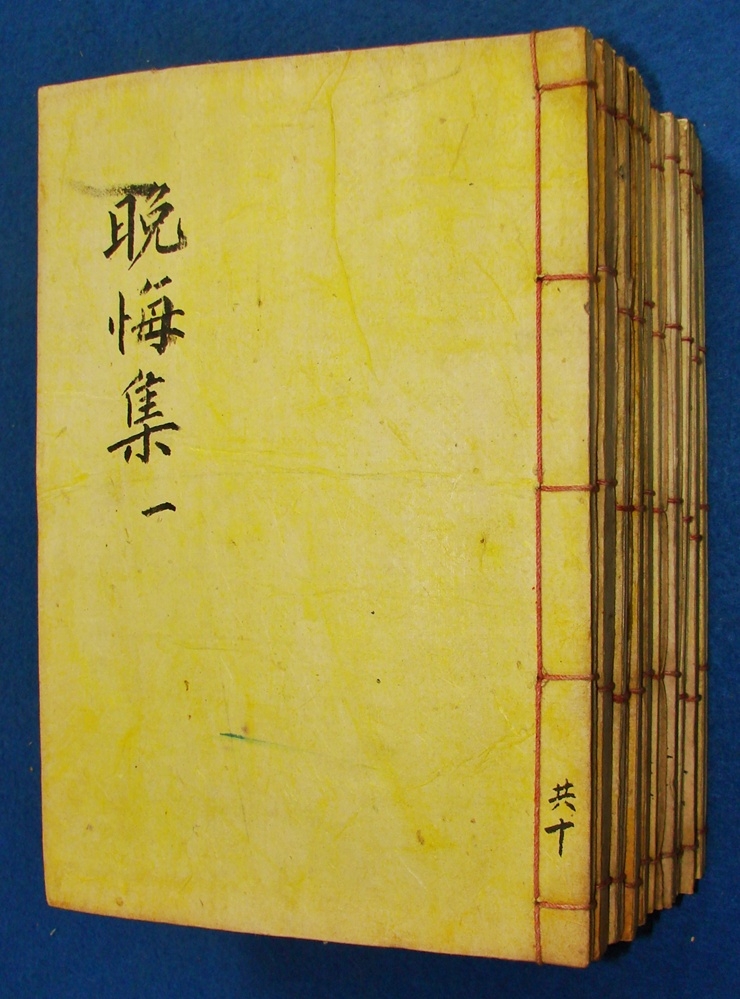 晩悔集 一
共十